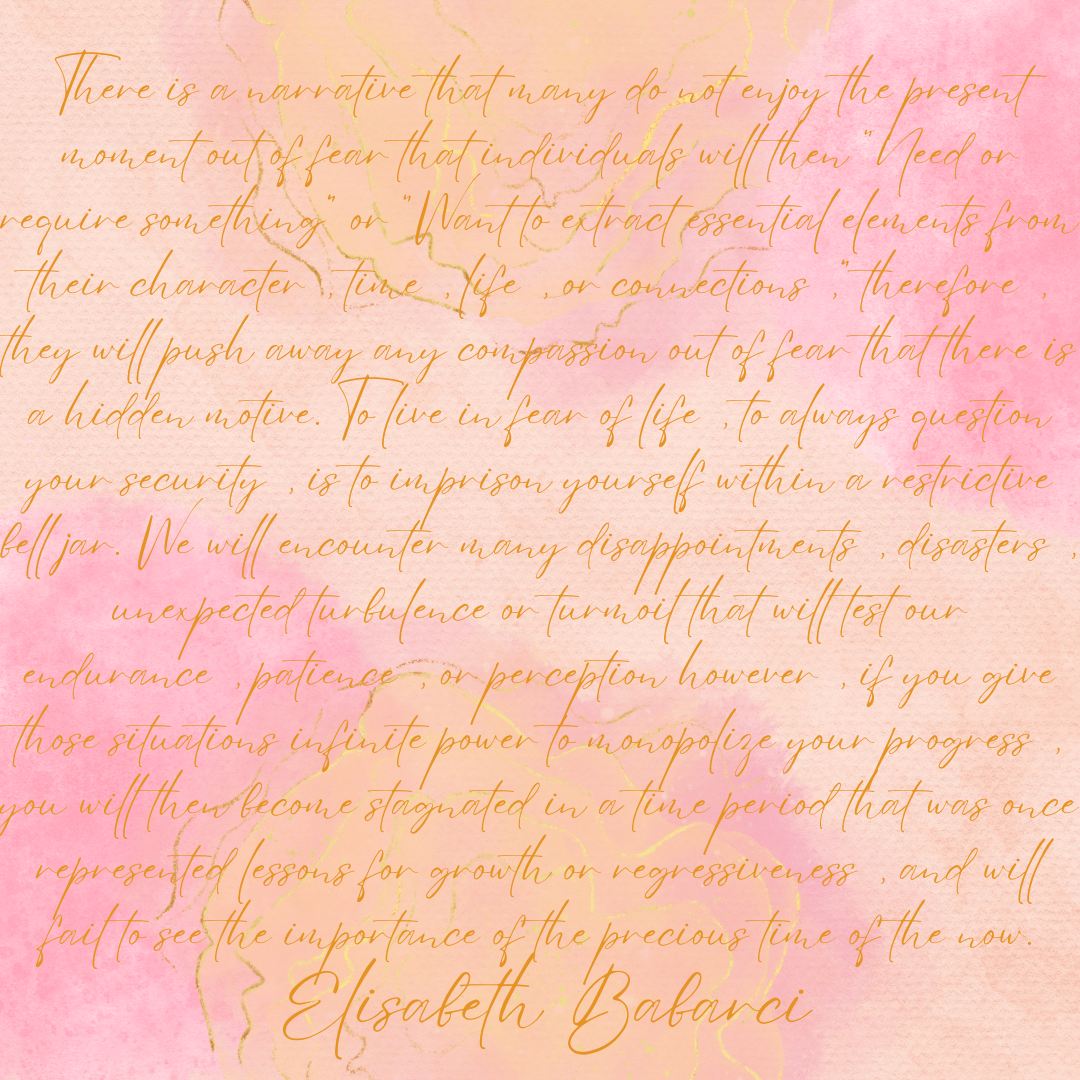 There is a narrative that many do not enjoy the present
moment out of fear that individuals will then "Need or
require something" or "Want to extract essential elements from
their character , time , life , or connections ," therefore ,
they will push away any compassion out of fear that there is
a hidden motive. To live in fear of life , to always question
your security , is to imprison yourself within a restrictive
bell jar. We will encounter many disappointments , disasters ,
unexpected turbulence or turmoil that will test our
endurance , patience , or perception however , if you give
those situations infinite power to monopolize your progress ,
you will then become stagnated in a time period that was once
represented lessons for growth or regressiveness , and will
fail to see the importance of the precious time of the now.
Elisabeth Babarci